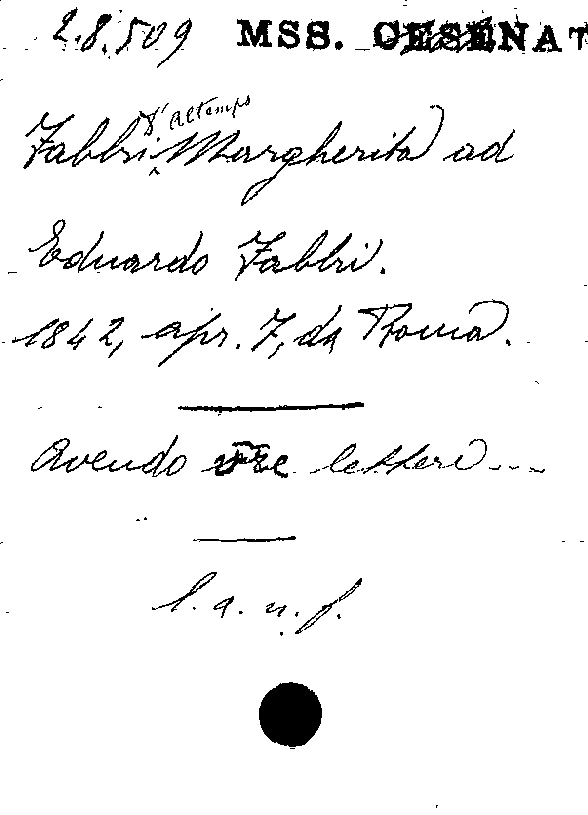 2.8.509 MSS. CESENAT
d'Altemps
Fabbri Margherita ad
Eduardo Fabbri.
1842, apr. 7, da Roma.
Avendo vre lettere...
l. a. n. f.